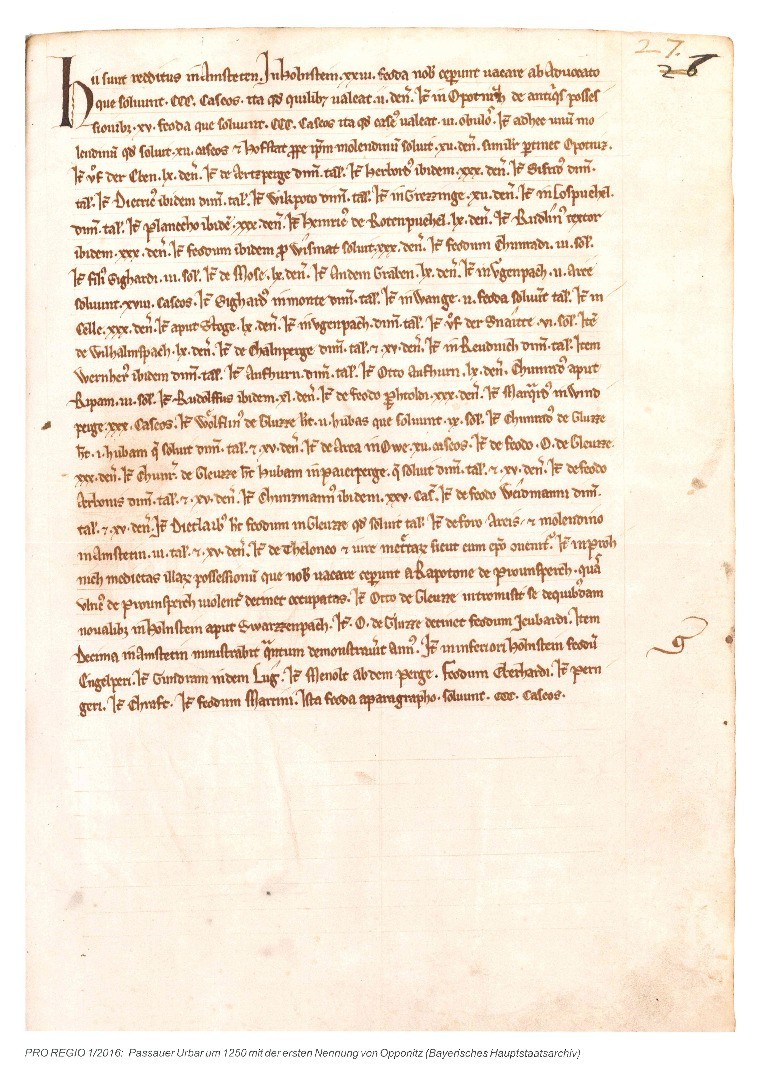 27.
26
Hii sunt redditus in Amsteten. In Holnstein. xxiii. feoda nob ceperunt uacare ab aduocato
que soluunt. CCC. Caseos. ita qd quilibz ualeat. ii. den. It in Opotnich de antiqis posses
sionibz. xv. feoda que soluunt. CCC. Caseos ita qd case ualeat. iii. obulos. It adhec unū mo
lendinū qd soluit. xii. caseos & hofstat ꝓpe ipm molendinū soluit. xii. den. similir ꝑtinet Opotniz.
It vf der Eben. lx. den. It de Artzperge dim. tal. It herbord ibidem. xxx. den. It Sifrid dim.
tal. It Dietric ibidem dim. tal. It Wikpoto dim. tal. It in Grezzinge. xii. den. It in Lospuchel.
dim. tal. It Planccho ibidē. xxx. den. It heinric de Rotenpuchel. lx. den. It Rudlin textor
ibidem. xxx. den. It feodum ibidem ꝓ Wismat soluit. xxx. den. It feodum Chunradi. iii. sol.
It filii Sighardi. iii. sol. It de Mose. lx. den. It An dem Graben. lx. den. It in vgenpach. ii. Aree
soluunt. xviii. caseos. It Sighard in monte dim. tal. It in Wange. ii. feoda soluūt tal. It in
Celle. xxx. den. It aput Stege. lx. den. It in vgenpach. dim. tal. It vf der Snaitte. vi. sol. Itē
de Wilhalmspach. lx. den. It de Chalnperge dim. tal. & xv. den. It in Reudnich dim. tal. Item
Wernher ibidem dim. tal. It Aufhurn. dim. tal. It Otto Aufhurn. lx. den. Chunrad aput
Ripam. iii. sol. It Rudolffus ibidem. xl. den. It de feodo ꝑhtoldi. xxx. den. It Marqrd in Wind
perge. xxx. Caseos. It Wolflin de Gluzze ht. ii. hubas que soluunt. ix. sol. It Chunrad de Gluzze
ht. i. hubam q soluit dim. tal. & xv. den. It de Area in Owe. xii. caseos. It de feodo. O. de Gleuzze.
xxx. den. It Chunr. de Gleuzze ht hubam in paierperge. q soluit dim. tal. & xv. den. It de feodo
dim. tal. & xv. den. It Chunzmann ibidem. xxv. Cas. It de feodo Waidmanni dim.
tal. & xv. den. It ht feodum in Gleuzze qd soluit tal. It de foro Areis. & molendino
in Amstetin. iii. tal. & xv. den. It de Theloneo & iure sicut cum epo It in
nich medietas illaꝝ possessionū que nob uacare ceperunt a Rapotone de Prounsperch. quā
de Prounsperch detinet occupatas. It Otto de Gleuzze intromisit se de quibdam
noualibz in holnstein aput Swarzzenpach. It. O. de Gluzze detinet feodum Item
Decima in Amstetin ministrabit qntum It in inferiori holnstein feodū
Engelperi. It Gundram in dem Lug. It Menolt ab dem Perge. Feodum Eberhardi. It Pern
geri. It Chraft. It feodum Martini. Ista feoda a paragrapho. soluunt. CCC. Caseos.
PRO REGIO 1/2016: Passauer Urbar um 1250 mit der ersten Nennung von Opponitz (Bayerisches Hauptstaatsarchiv)